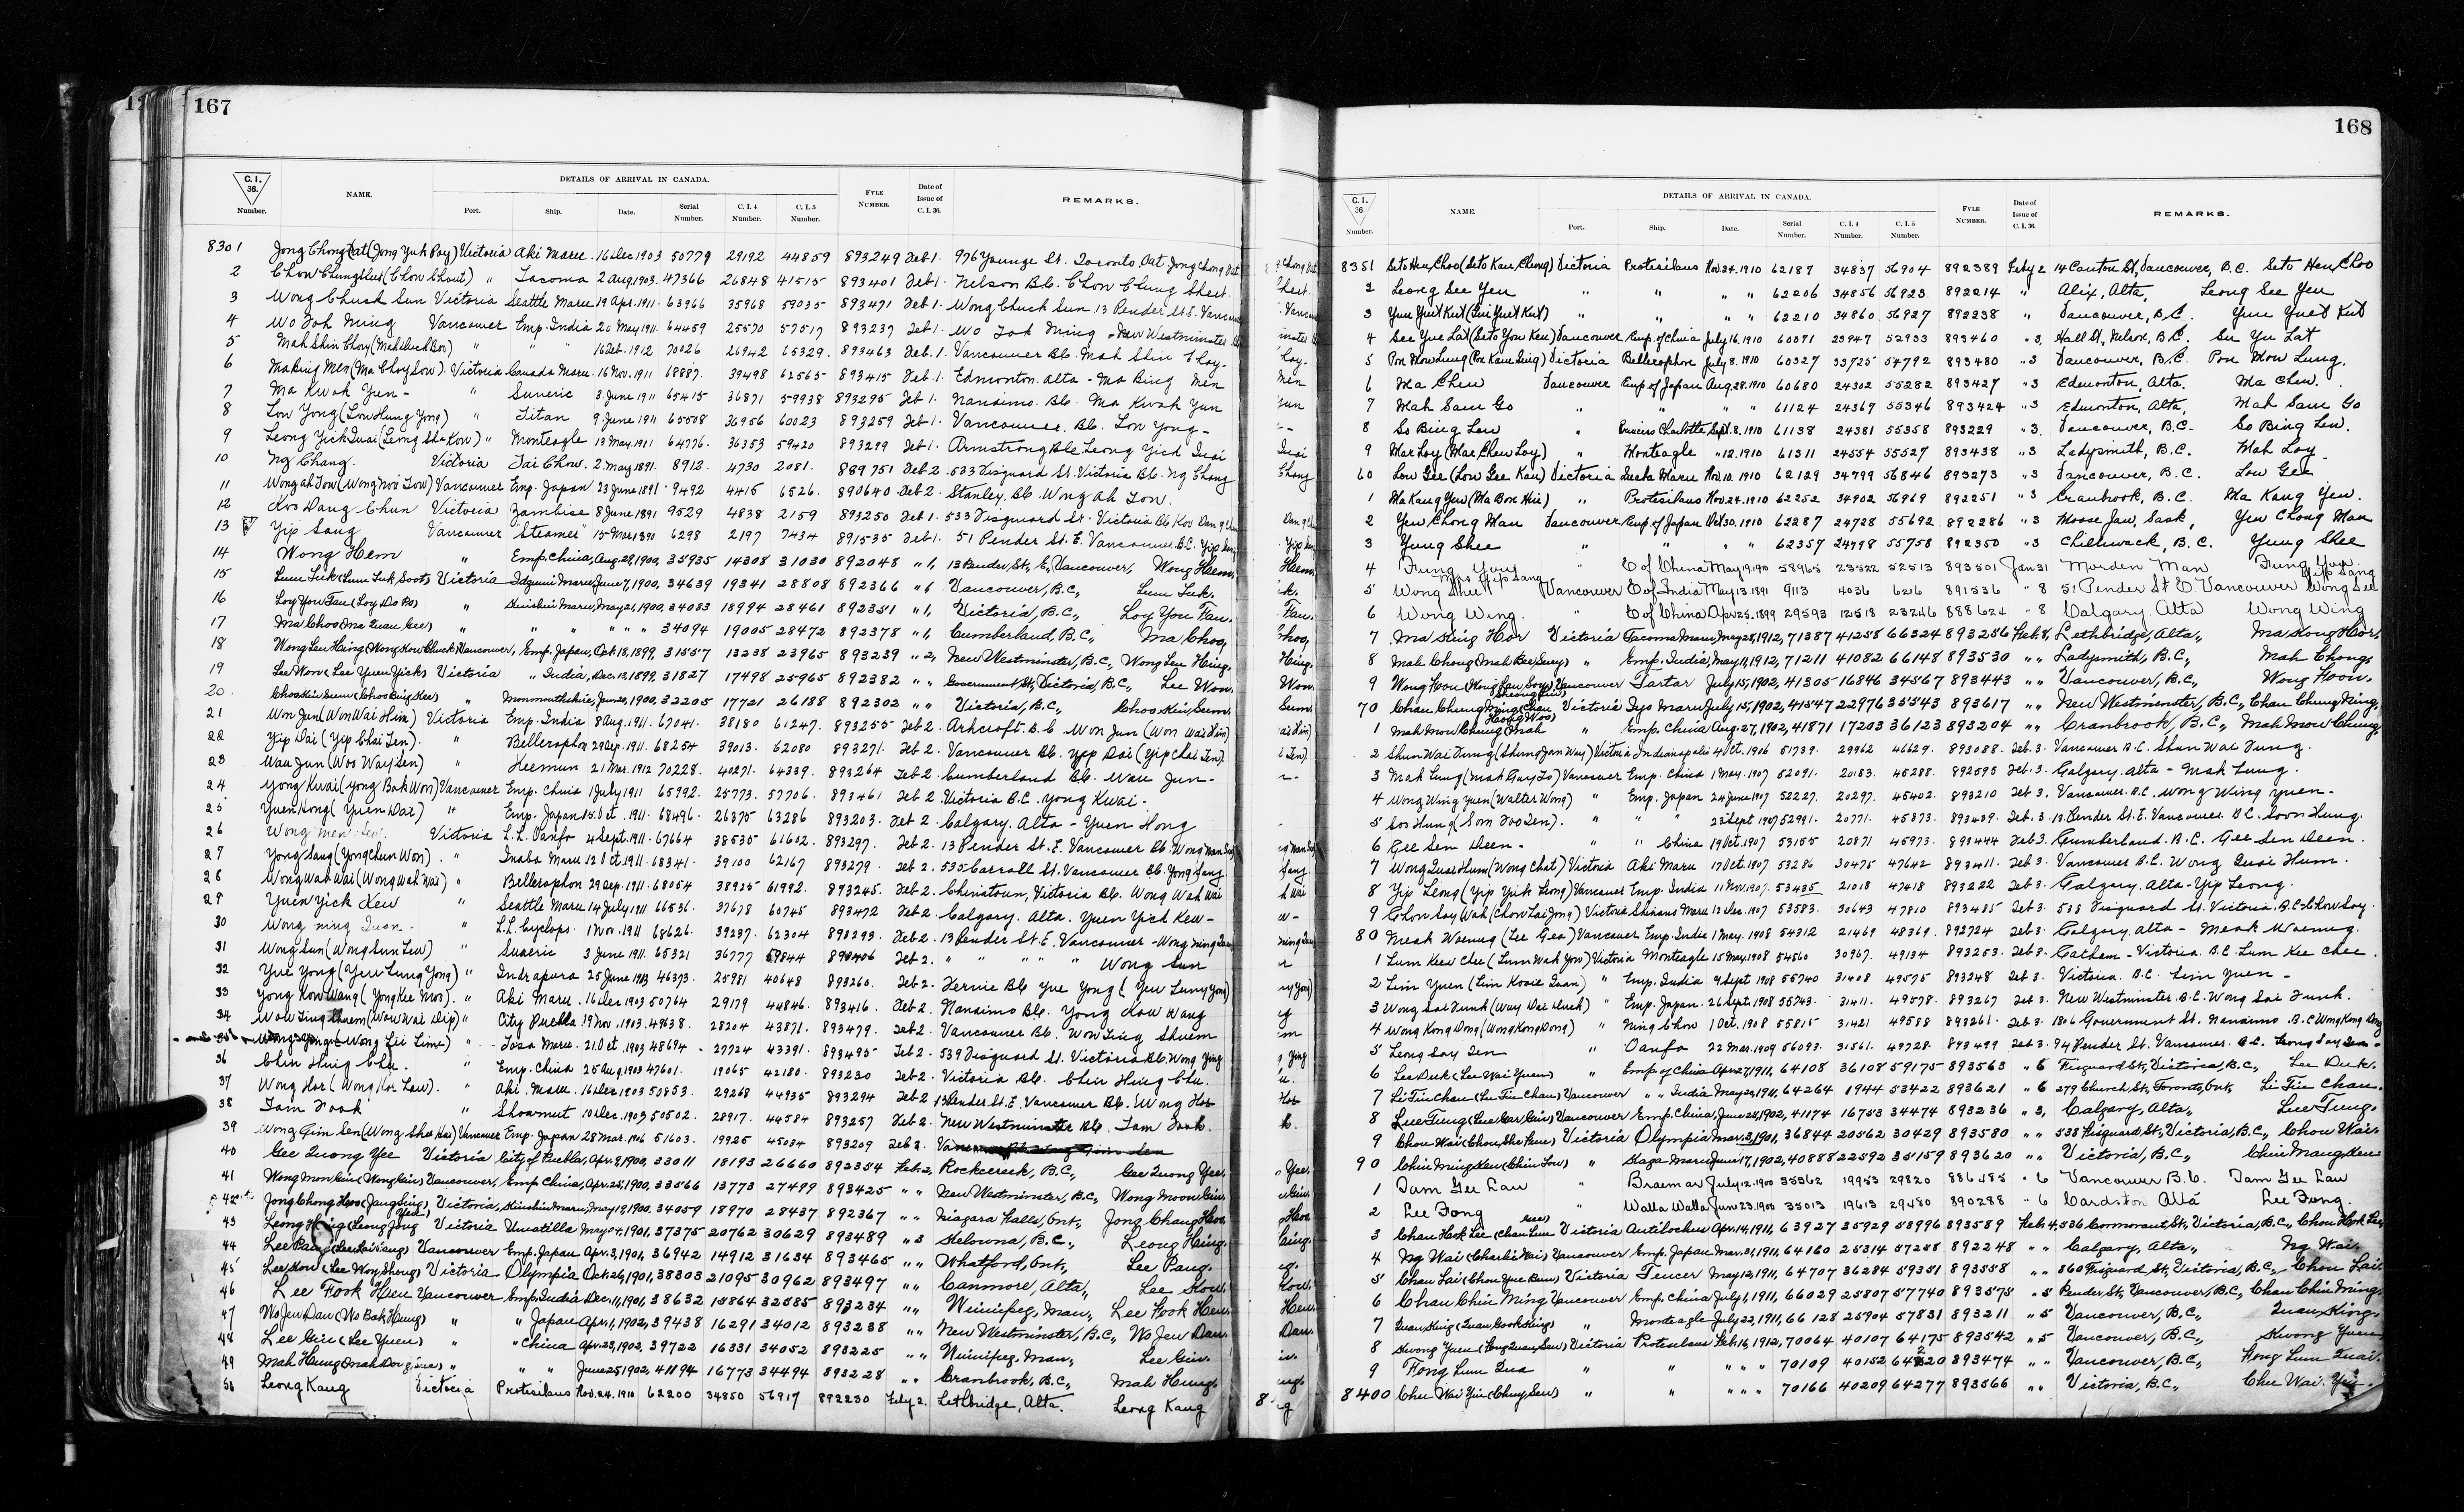 167
C. I. 36. Number. NAME. DETAILS OF ARRIVAL IN CANADA. Port. Ship. Date. Serial Number. C. I. 4 Number. C. I. 5 Number. FYLE NUMBER. Date of Issue of C. I. 36. REMARKS.
8301 Jong Chong Dat (Jong Yuk Poy) Victoria Aki Maru 16 Dec 1903 50779 29192 44859 893249 Feb 1. 976 Younge St. Toronto Ont Jong Chong Dat
2 Chow Chung Shert (Chow Chout) " Tacoma 2 Aug 1903. 47366 26848 41515 893401 Feb 1. Nelson B.C. Chow Chung Shert.
3 Wong Chuck Sun Victoria Seattle Maru 19 Apr. 1911. 63966 35968 59035 893471 Feb 1. Wong Chuck Sun 13 Pender St E. Vancouver
4 Wo Toh Ming Vancouver Emp. India 20 May 1911. 64459 25570 57517 893237 Feb 1. Wo Toh Ming - New Westminster
5 Mah Shin Choy " " " 16 Feb. 1912 70026 26942 65329. 893463 Feb. 1. Vancouver B.C. Mah Shin Choy.
6 Ma King Men (Ma Choy Sow). Victoria Canada Maru. 16 Nov. 1911 68887. 39498 62565 893415 Feb 1. Edmonton. Alta - Ma King Men
7 Ma Kwok Yun - " Suveric 3. June 1911 65415 36871 59938 893295 Feb 1. Nanaimo. B.C. Ma Kwok Yun
8 Low Yong (Low Hung Yong) " Titan 9 June 1911 65508 36956 60023 893259 Feb 1. Vancouver. B.C. Low Yong -
9 Leong Yick Quai (Leong Sha Kow) " Monteagle 13 May 1911 64776. 36353 59420 893299 Feb 1. Armstrong B.C. Leong Yick Quai
10 Ng Chang. Victoria Tai Chow. 2. May 1891. 8912. 4730 2081. 889751 Feb 2. 533 Fisguard St. Victoria B.C. Ng Chang
11 Wong ah Tow (Wong Noi Tow) Vancouver Emp. Japan 23 June 1891 9492 4415 6526. 890640 Feb 2. Stanley. B.C. Wong Ah Tow.
12 Koo Dang Chun Victoria Zambise 8 June 1891 9529 4838 2159 893250 Feb 1. 533 Fisguard St. Victoria B.C. Koo Dang Chun
13 Yip Sang Vancouver "Steamer" 15 Mar 1890 6298 2197 7434 891535 Feb 1. 51 Pender St. E. Vancouver B.C. Yip Sang
14 Wong Hem " Emp. China, Aug. 29, 1900, 35935 14308 31030 892048 " 1, 13 Pender, St, E, Vancouver, Wong Haem.
15 Lum Luk (Lum Luk Soot) Victoria Idzumi Maru, June 7, 1900, 34639 19341 28808 892366 " 1 Vancouver, B.C., Lum Luk.
16 Loy You Fau (Loy Do Bo) " Kinshiu Maru, May 21, 1900, 34083 18994 28461 892351 " 1, Victoria, B.C., Loy You Fau.
17 Ma Choo (Ma Quan Gee) " " " " " " 34094 19005 28472 892378 " 1, Cumberland, B.C., Ma Choo,
18 Wong Leu Hing (Wong How Chuck) Vancouver, Emp. Japan, Oct. 18, 1899, 31557 13238 23965 893239 " 2, New Westminster, B.C., Wong Leu Hing.
19 Lee Won (Lee Yuen Yick) Victoria " India, Dec. 13, 1899, 31827 17498 25965 892382 " " Government St, Victoria, B.C., Lee Won.
20. Choo Kin Sum (Choo Bing Kee) " Monmouthshire, Jan. 20, 1900, 32205 17721 26188 892302 " " Victoria, B.C., Choo Kin, Sum.
21 Won Jun (Won Wai Him) Victoria Emp. India 8 Aug. 1911. 67041. 38180 61247. 893255 Feb 2. Ashcroft. B.C Won Jun (Won Wai Him)
22 Yip Dai (Yip Chai Sen). " Bellerophon 29 Sep. 1911. 68254 39013. 62080 893271. Feb 2. Vancouver B.C. Yip Dai (Yip Chai Sen).
23 Wau Jun (Woo Way Sen) " Heemun 21 Mar. 1912 70228. 40271. 64339. 893264 Feb 2. Cumberland B.C. Wau Jun -
24 Yong Kwai (Yong Bak Won) Vancouver Emp. China 1 July 1911 65992. 25773. 57706. 893461 Feb 2. Victoria B.C. Yong Kwai.
25 Yuen Hong (Yuen Dai) " Emp. Japan 15. Oct. 1911. 68496. 26375 63286 893203. Feb 2. Calgary. Alta - Yuen Hong
26 Wong Men Victoria L.L. Oanfa 4 Sept. 1911. 67664 38535 61602. 893297. Feb 2. 13 Pender St. E. Vancouver B.C. Wong Man
27 Yong Sang (Yong Chun Won). " Inaba Maru 12 Oct. 1911. 68341. 39100 62167 893279 Feb 2. 535 Carroll St. Vancouver B.C. Yong Sang
28 Wong Wah Wai (Wong Wah Wai) " Bellerophon 29 Sep. 1911. 68054 38925 61992. 893245. Feb 2. Chinatown, Victoria B.C. Wong Wah Wai
29 Yuen Yick Kew " Seattle Maru 14 July 1911 66536. 37678 60745 893472 Feb 2. Calgary. Alta. Yuen Yick Kew -
30 Wong Ning Quan - " L.L. Cyclops. 1 Nov. 1911 68626. 39237. 62304 893293. Feb 2. 13 Pender St. E. Vancouver - Wong Ning Quan
31 Wong Sun (Wong Sun Lew) " Suveric 3 June 1911. 65321 36777 59844 893406 Feb 2. " " " " " Wong Sun
32 Yue Yong (Yeu Lung Yong) " Indrapura 25 June 1903 46393. 25981 40648 893260. Feb 2. Fernie B.C. Yue Yong (Yeu Lung Yong)
33 Yong Kow Wang (Yong Kee Mon). " Aki Maru. 16 Dec 1903 50764 29179 44846. 893416. Feb 2. Nanaimo B.C. Yong Kow Wang
34 Wow Ting Shuem (Wow Wai Dip) " City Puebla 19 Nov. 1903. 49638. 28204 43871. 893479. Feb 2. Vancouver B.C. Wow Ting Shuem
35 Wong Ying (Wong Lei Lime) " Tosa Maru. 21. Oct. 1903 48694. 27724 43391. 893495 Feb 2. 539 Fisguard St. Victoria B.C. Wong Ying
36 Chin Hing Chu. " Emp. China 25 Aug. 1903 47601. 19065 42180. 893230 Feb 2. Victoria B.C. Chin Hing Chu.
37 Wong Hor (Wong Hor Law). " Aki. Maru. 16 Dec. 1903 50853. 29268 44935 893294 Feb 2 13 Pender. St. E. Vancouver B.C. Wong Hor
38 Tam Fook " Shawmut 10 Dec. 1903 50502. 28917. 44584 893257 Feb 2. New Westminster B.C. Tam Fook.
39 Wong Gim Sen (Wong Shee Kai) Vancouver Emp. Japan 28 Mar. 1906 51603. 19925 45034 893209 Feb 2.
40 Gee Quong Yee Victoria City of Puebla, Apr. 9, 1900, 33011 18193 26660 892354 Feb. 2, Rockcreek, B.C., Gee Quong Yee.
41 Wong Mon Gin (Wong Gin) Vancouver, Emp. China, Apr. 25, 1900, 33566 13773 27499 893425 " " New Westminster, B.C., Wong Moon Gin.
42 Jong Chong Hoo Victoria, Kinshiu Maru, May 19, 1900, 34059 18970 28437 892367 " " Niagara Falls, Ont., Jong Chang Hoo.
43 Leong Hing (Leong Jong Yick) Victoria Umatilla May 4, 1901, 37375 20762 30629 893489 " 3 Kelowna, B.C., Leong Hing.
44 Lee Pang (Lee Lai Fang) Vancouver Emp. Japan, Apr. 3, 1901, 36942 14912 31634 893465 " " Whatford, Ont., Lee Pang.
45 Lee Kow (Lee Woy Shong) Victoria Olympia Oct. 26, 1901, 38303 21095 30962 893497 " " Canmore, Alta., Lee Kow.
46 Lee Fook Hen Vancouver Emp. India Dec. 11, 1901, 38632 15864 32585 893234 " " Winnipeg, Man., Lee Fook Hen.
47 No Jew Dan (No Bak Hung) " " Japan Apr. 1, 1902, 39438 16291 34012 893238 " " New Westminster, B.C., No Jew Dan.
48 Lee Gin (Lee Yuen) " " China Apr. 23, 1902, 39722 16331 34052 893225 " " Winnipeg, Man., Lee Gin.
49 Mah Hung (Mah Dor Jure) " " " June 25, 1902, 41194 16773 34494 893228 " " Cranbrook, B.C., Mah Hung.
50 Leong Kang Victoria Protesilaus Nov. 24. 1910 62200 34850 56917 892230 Feby 2. Lethbridge, Alta. Leong Kang
168
C. I. 36. Number. NAME. DETAILS OF ARRIVAL IN CANADA. Port. Ship. Date. Serial Number. C. I. 4 Number. C. I. 5 Number. FYLE NUMBER. Date of Issue of C. I. 36. REMARKS.
8351 Seto Hen, Choo (Seto Kau, Cheong) Victoria Protesilaus Nov. 24. 1910 62187 34837 56904 892389 Feby 2 14 Canton St, Vancouver, B.C. Seto Hen, Choo
2 Leong See Yen " " " " 62206 34856 56923 892214 " Alix, Alta, Leong See Yen
3 Yuen Yuet Kut (Gui Yuet Kut) " " " " 62210 34860 56927 892238 " Vancouver, B.C. Yuen Yuet Kut
4 See Yue Lat (Seto Yon Keu) Vancouver Emp. of China July 16. 1910 60071 23947 52933 893460 " 3. Hall St, Nelson, B.C. See Yu Lat
5 Pon Mow Lung (Pon Kam Sing) Victoria Bellerophon July 8. 1910 60327 33725 54792 893480 " 3 Vancouver, B.C. Pon Mow Lung.
6 Ma Chew Vancouver Emp. of Japan Aug. 28. 1910 60680 24302 55282 893427 " 3 Edmonton, Alta. Ma Chew.
7 Mah Sam Go " " " " 61124 24367 55346 893424 " 3 Edmonton, Alta, Mah Sam Go
8 So Bing Lew " Princess Charlotte Sept. 8. 1910 61138 24381 55358 893229 " 3. Vancouver, B.C. So Bing Lew.
9 Mar Loy (Mar Chew Loy) " Monteagle " 12. 1910 61311 24554 55527 893438 " 3 Ladysmith, B.C. Mah Loy
60 Low Gee (Low Gee Kau) Victoria Sueha Maru Nov. 10. 1910 62129 34799 56846 893273 " 3 Vancouver, B.C. Low Gee
1 Ma Kang Yew (Ma Bon Hin) " Protesilaus Nov. 24. 1910 62252 34902 56969 892251 " 3 Cranbrook, B.C. Ma Kang Yew.
2 Yew Chong Man Vancouver Emp. of Japan Oct 30. 1910 62287 24728 55692 892286 " 3 Moose Jaw, Sask, Yew Chong Man
3 Yung Shee " " " " 62357 24798 55758 892350 " 3 Chilliwack, B.C. Yung Shee
4 Fung You " E of China May 19. 1910 58965 23522 52513 893501 Jan 31 Morden Man Fung You
5 Wong Shee Mrs Yip Sang Vancouver E of India May 13 1891 9113 4036 6216 891536 " 8 51 Pender St E Vancouver Wong Shee Yip Sang
6 Wong Wing. " E of China Apr 25. 1899 29593 12518 23246 888624 " 8 Calgary. Alta Wong Wing
7 Ma Sing Hor Victoria Tacoma Maru, May 28, 1912, 71387 41258 66324 893256 Feb. 8, Lethbridge, Alta., Ma Song Hor,
8 Mah Chong (Mah Bee, Suey) " Emp. India, May 11, 1912, 71211 41082 66148 893530 " " Ladysmith, B.C., Mah Chong,
9 Wong Hou (Wong Jan Soy) Vancouver Tartar July 15, 1902, 41305 16846 34567 893443 " " Vancouver, B.C., Wong Hoon.
70 Chan Chung Ming (Chan Sheong Jin) Victoria Iyo Maru July 15, 1902, 41547 22976 35543 893617 " " New Westminster, B.C, Chan Chung Ming,
1 Mah Mow Chung (Mah Hong Woo) " Emp. China Aug. 27, 1902, 41871 17203 36123 893204 " " Cranbrook, B.C., Mah Mow Chung,
2 Shun Wai Fung (Shung Jan Way) Victoria Indianapolis 4 Oct. 1906 51739. 29962 46629. 893088. Feb. 3. Vancouver B.C. Shun Wai Fung.
3 Mak Lung (Mak Gay To) Vancouver Emp. China 1 May. 1907 52091. 20183. 45288. 892595 Feb. 3. Calgary. Alta - Mak Lung.
4 Wong Wing Yuen (Walter Wong) " Emp. Japan 24 June 1907 52227. 20297. 45402. 893210 Feb 3. Vancouver. B.C. Wong Wing Yuen -
5 Soo Hung (Som Foo Sen). " " " 23 Sept 1907 52991. 20771. 45873. 893439. Feb. 3. 13 Pender St. E. Vancouver. B.C. Soon Hung.
6 Gee Sen Deen - " " China 19 Oct. 1907 53155 20871 45973. 893444 Feb 3. Cumberland. B.C. Gee Sen Deen.
7 Wong Quai Hum (Wong Chat) Victoria Aki Maru 17 Oct. 1907 53286 30475 47642 893411. Feb 3. Vancouver B.C. Wong Quai Hum.
8 Yip Leong (Yip Yick Leong) Vancouver Emp. India 11 Nov. 1907. 53435 21018 47418 893222 Feb 3. Calgary. Alta - Yip Leong.
9 Chow Soy Wah (Chow Lai Jong) Victoria Shinano Maru 12 Dec. 1907 53583. 30643 47810 893485 Feb 3. 538 Fisguard St. Victoria. B.C. Chow Soy.
80 Meak Woenug (Lee Geo) Vancouver Emp. India 1 May. 1908 54312 21469 48369. 892724 Feb 3. Calgary. Alta - Meak Woenug.
1 Lum Kee Chee (Lum Wah Jow) Victoria Monteagle 15 May. 1908 54560 30967. 49134 893253. Feb 3. Chatham - Victoria. B.C. Lum Kee Chee.
2 Lim Yuen (Lim Kosie Quan) " Emp. India 9 Sept 1908 55740 31408 49575 893248 Feb 3. Victoria. B.C. Lim Yuen -
3 Wong Sai Funk (Way Dai Huck) " Emp. Japan. 26 Sept. 1908 55743. 31411. 49578. 893267 Feb 3. New Westminster. B.C. Wong Sai Funk.
4 Wong Kong Dong (Wong Kong Dong) " Ning Chow 1 Oct. 1908 55815 31421 49588 893261. Feb 3. 1806 Government St. Nanaimo B.C Wong Kong Dong
5 Leong Soy Sen " Oanfa 22 Mar. 1909 56093. 31561. 49728. 893499 Feb 3. 94 Pender St. Vancouver. B.C. Leong Soy Sen -
6 Lee Duk (Lee Wai Yuen) " Emp of China Apr. 27, 1911, 64108 36108 59175 893563 " 6 Fisguard St., Victoria, B.C., Lee Duk.
7 Li Tin Chan (Lee Tin Chan) Vancouver " " India May 20, 1911, 64264 1944 53422 893621 " 6 279 Church, St, Toronto, Ont., Li Tin Chan.
8 Lue Tung (Lue Gar Gin) Vancouver Emp. China, June 25, 1902, 41074 16753 34474 893236 " 3, Calgary, Alta., Lue Tung.
9 Chou Wai (Chou She Hun) Victoria Olympia Mar. 3, 1901, 36844 20562 30429 893580 " " 538 Fisguard St., Victoria, B.C., Chou Wai.
90 Chin Ming Hen (Chin Low) " Kaga Maru June 17, 1902, 40888 22592 35159 893620 " " Victoria, B.C., Chin Mang Hen
1 Tam Gee Lau " Braemar July 12. 1900 35362 19953 29820 886485 " 6 Vancouver B.C. Tam Gee Lau
2 Lee Fong " Walla Walla Jun 23. 1900 35013 19613 29480 890288 " 6 Cardston Alta Lee Fong.
3 Chan Hook Lee (Chan Lun Gee) Victoria Antilochus Apr. 14, 1911, 63927 35929 58996 893589 Feb. 4, 536 Cormorant St., Victoria, B.C., Chou Hook Lee,
4 Ng Wai (Charlie Wai) Vancouver Emp. Japan Mar. 31, 1911, 64160 25314 57258 892248 " " Calgary, Alta., Ng Wai.
5 Chan Lai (Chou Yue Bun) Victoria Teucer May 12, 1911, 64707 36284 59351 893558 " " 560 Fisguard St, Victoria, B.C., Chou Lai.
6 Chan Chin Ming Vancouver Emp. China July 1, 1911, 66029 25807 57740 893575 " 5 Pender St., Vancouver, B.C., Chan Chin Ming,
7 Quan King (Quan Gook King) " Monteagle July 22, 1911, 66128 25904 57831 893211 " 5 Vancouver, B.C., Quan King.
8 Kwong Yuen Victoria Protesilaus Feb. 16, 1912, 70064 40107 64175 893542 " 5 Vancouver, B.C., Kwong Yuen
9 Fong Lum Qua " " " " " 70109 40152 64220 893474 " " Vancouver, B.C., Fong Lum Quai.
8400 Chu Wai Yin (Chuy Sen) " " " " " 70166 40209 64277 893566 " " Victoria, B.C., Chu Wai Yin.